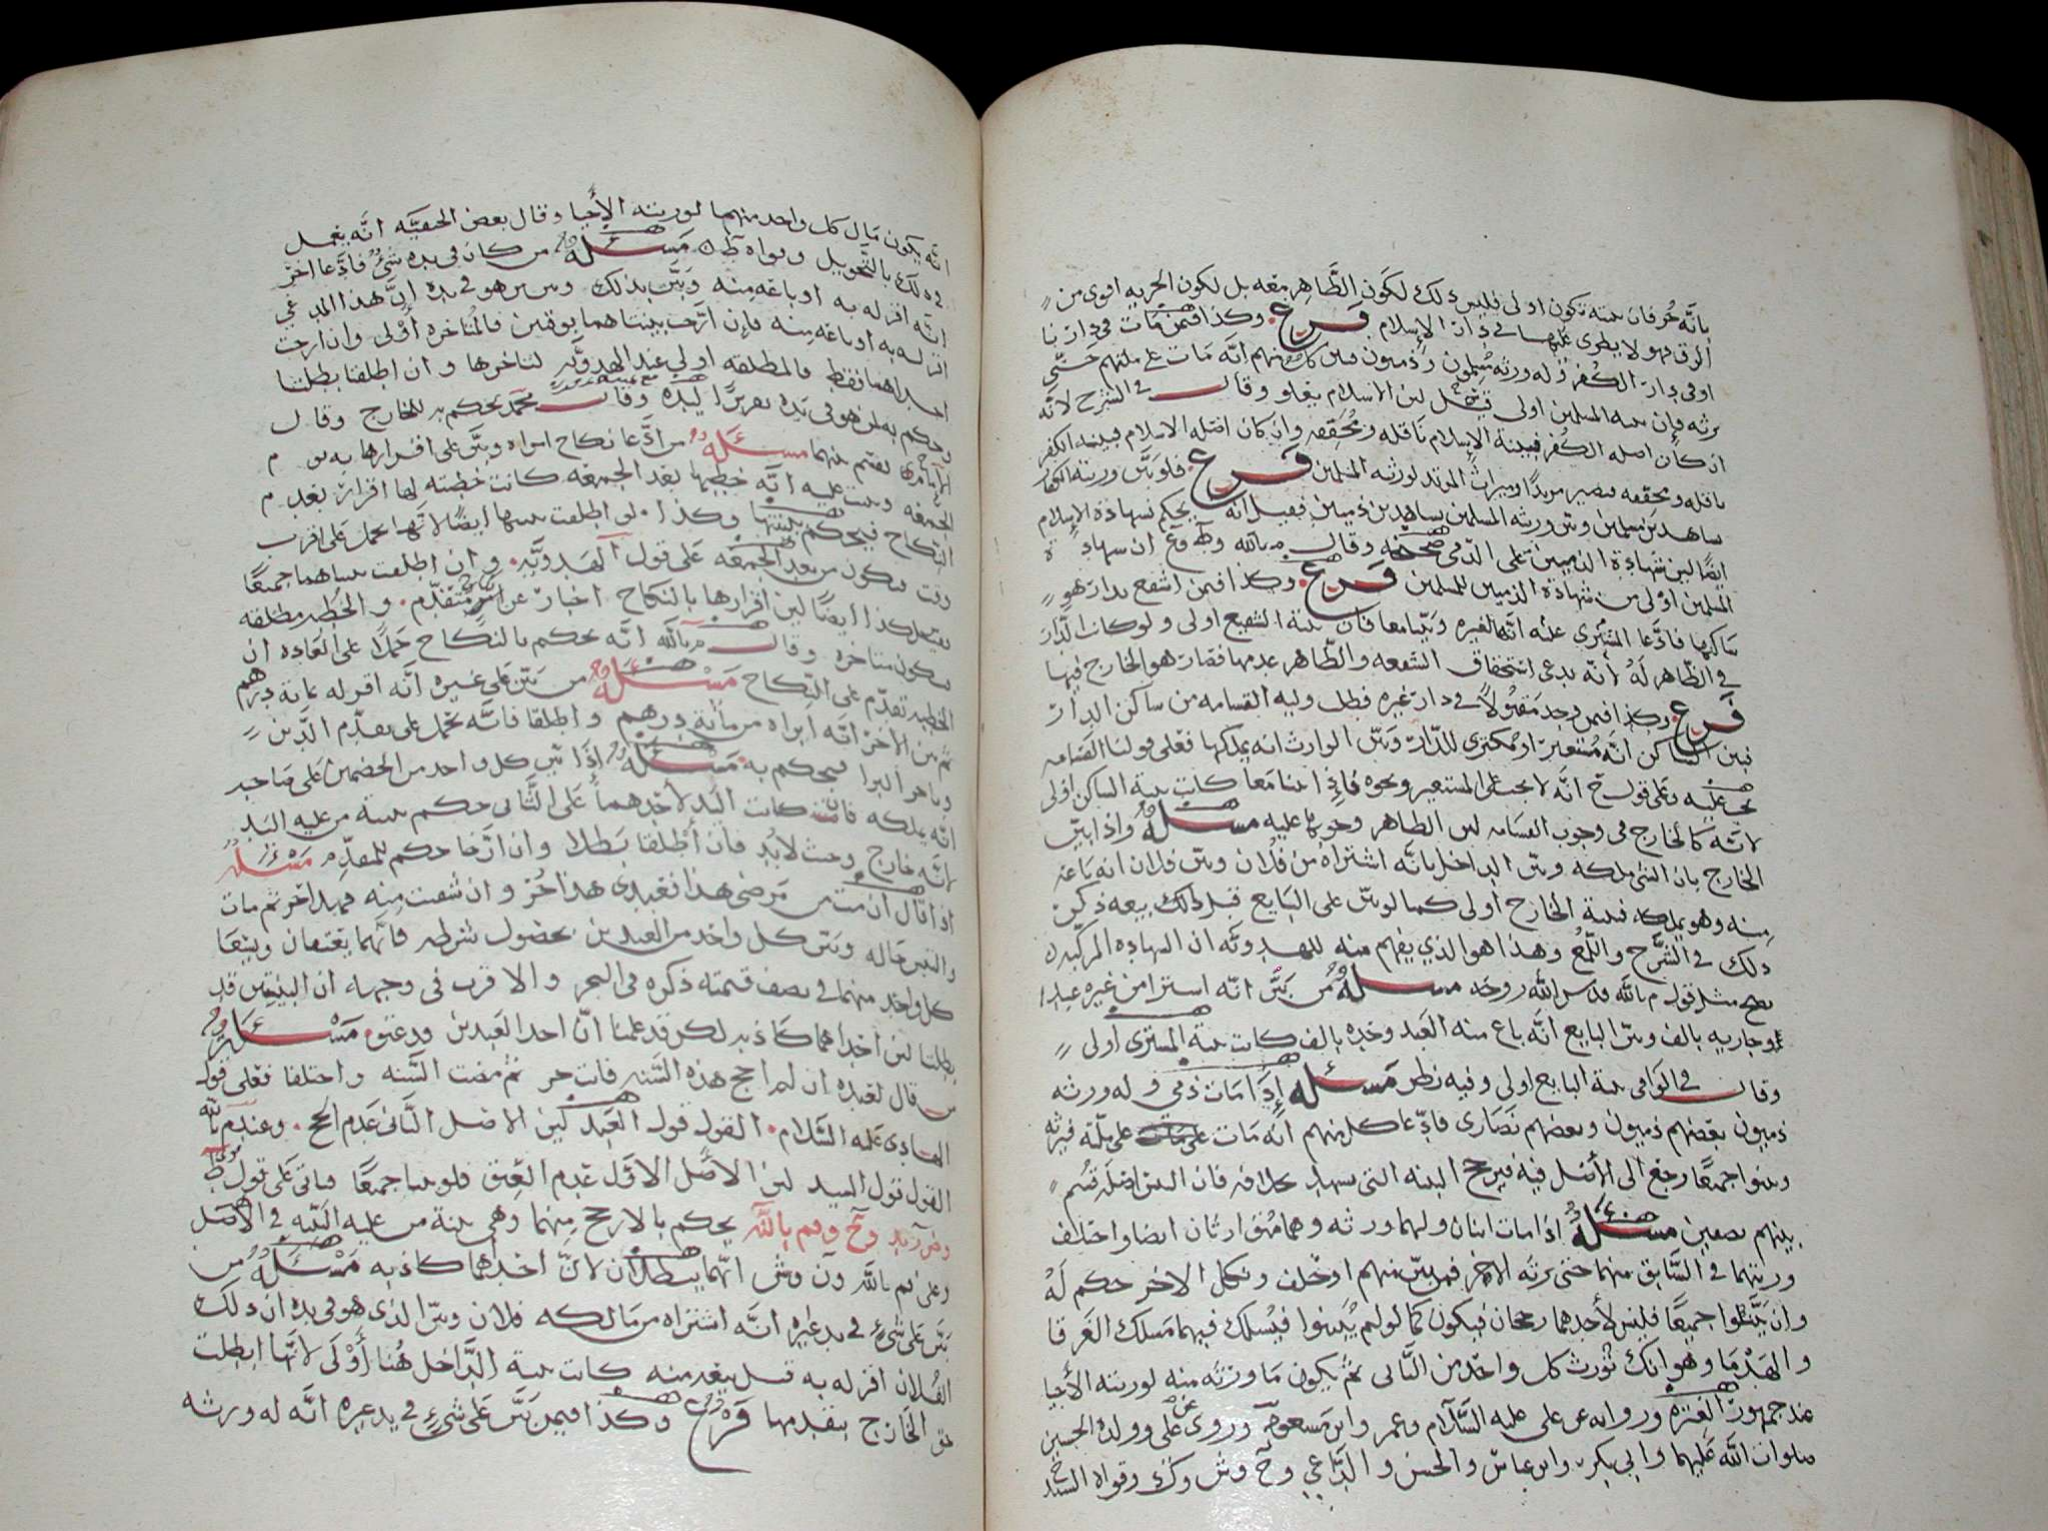 بانه حُر فان بينته تكون اولى فليس ذلك لكون الظَّاهر معه بل لكون الحريه اقوى من
الرق فهو لا يطرى عليها في دار الاسلام فرع وكذا فيمن مات في دارنا
او في دار الكفر وله ورثه مسلمون وذميون وبين كل منهم انه مات على ملتهم حتى
يرثه فان بينه المسلمين اولى قيل لان الاسلام يعلو وقال في الشرح لانه
ان كان اصله الكفر فبينة الاسلام ناقله ومحققه وان كان اصله الاسلام فبينة الكفر
ناقله ومحققه فيصير مرتدا وميراث المرتد لورثته المسلمين فرع فلو بين ورثته الكفار
شاهدين مسلمين وبين ورثته المسلمين شاهدين ذميين فقيل انه يحكم بشهادة الاسلام
ايضا لان شهادة الذميين على الذمي صحيحه وقال م بالله وط وع ان شهادة
المسلمين اولى من شهادة الذميين للمسلمين فرع وكذا فيمن اشفع بدار هو
ساكنها فادعا المشترى عليه انها لغيره وبينا معا فان بينة الشفيع اولى ولو كانت الدار
في الظاهر له لانه يدعى استحقاق الشفعه والظاهر عدمها فصار هو الخارج فيها
فرع وكذا فيمن وجد مقتولا في دار غيره فطلب وليه القسامه من ساكن الدار
فبين الساكن انه مستعير او مكترى للدار وبين الوارث انه يملكها فعلى قولنا القسامه
تجب عليه وعلى قول ح انه لا يجب على المستعير ونحوه فاذا بينا معا كانت بينة الساكن اولى
لانه كالخارج في وجوب القسامه لان الظاهر وجوبها عليه مسئله واذا بين
الخارج بان الشي ملكه وبين الداخل بانه اشتراه من فلان وبين فلان انه باعه
منه وهو يملكه فبينة الخارج اولى كما لو بين على البايع قبل ذلك ببيعه ذكر
ذلك في الشرح واللمع وهذا هو الذي يفهم منه للهدويه ان الشهاده المركبه
تصح مثل قول م بالله قدس الله روحه مسئله من بين انه اشترا من غيره عبدا
او جاريه بالف وبين البايع انه باع منه العبد وحده بالف كانت بينة المشترى اولى
وقال في الوافى بينة البايع اولى وفيه نظر مسئله اذا مات ذمي وله ورثه
ذميون بعضهم ذميون وبعضهم نصارى فادعا كل منهم انه مات على ملته فيرثه
وبينوا جميعا رجع الى الاصل فيه فيرجح البينه التى تشهد بخلافه فان التبس اصله قسم
بينهم نصفين مسئله اذا مات اثنان ولهما ورثه وهما متوارثان ايضا واختلف
ورثتهما في السابق منهما حتى يرثه الاخر فمن بين منهم او حلف ونكل الاخر حكم له
وان بينوا جميعا فليس لاحدهما رجحان فيكون كما لو لم يبينوا فيسلك فيهما مسلك الغرقا
والهدما وهو انك تورث كل واحد من الثاني ثم يكون ما ورثه منه لورثته الاحيا
عند جمهور العتره ورواية عن علي عليه السلام وعمر وابن مسعود وروى عن علي وولده الحسين
صلوات الله عليهما وابي بكر وابن عباس والحسن والداعي وح وش وك وقواه السيد ح
انه يكون مال كل واحد منهما لورثته الاحيا وقال بعض الحنفيه انه يعمل
في ذلك بالتحويل وقواه مسئله من كان في يده شيء فادعا اخر
انه اقر له به او باعه منه وبين بذلك وبين من هو في يده ان هذا المدعي
اقر له به او باعه منه فان ارخت بينتاهما بوقتين فالمتاخره اولى وان ارخت
احداهما فقط فالمطلقه اولى عند الهدويه لتاخرها وان اطلقتا بطلتا
وحكم به لمن هو في يده تقريرا ليده وقال محمد يحكم به للخارج وقال
يقسم بينهما مسئله من ادعا نكاح امراه وبين على اقرارها به يوم
الجمعه وبينت عليه انه خطبها بعد الجمعه كانت خطبته لها اقرار بعدم
النكاح فيحكم ببينتها وكذا لو اطلقت بينتها ايضا لانها تحمل على اقرب
وقت فيكون من بعد الجمعه على قول الهدويه وان اطلقت بينتاهما جميعا
فيحتمل كذا ايضا لان اقرارها بالنكاح اخبار عن امر متقدم والخطبه مطلقه
فيكون متاخره وقال م بالله انه يحكم بالنكاح حملا على العاده ان
الخطبه تقدم على النكاح مسئله من بين على غيره انه اقر له بمائة درهم
ثم بين الاخر انه ابراه من مائة درهم واطلقا فانه يحمل على تقدم الدين
وتاخر البرا فيحكم به مسئله اذا بين كل واحد من الخصمين على صاحبه
انه يملكه فان كانت اليد لاحدهما على الثاني حكم ببينة من عليه اليد
لانه خارج وحيث لا يد فان اطلقا بطلا وان ارخا حكم للمقدم مسئله
اذا قال ان مت من مرضي هذا فعبدى هذا حر وان شفيت منه فهذا الاخر ثم مات
والتبس حاله وبين كل واحد من العبدين بحصول شرطه فانهما يعتقان ويسعا
كل واحد منهما في نصف قيمته ذكره في البحر والاقرب في وجهه ان البينتين قد
بطلتا لان احداهما كاذبه لكن قد علمنا ان احد العبدين قد عتق مسئله
من قال لعبده ان لم احج هذه السنه فانت حر ثم مضت السنه واختلفا فعلى قول
الهادى عليه السلام القول قول العبد لان الاصل الثانى عدم الحج وعند م بالله
القول قول السيد لان الاصل الاول عدم العتق فلو بينا جميعا فياتى على قول ط
وض زيد وح وم بالله يحكم بالارجح منهما وهي بينة من عليه البينه في الاصل
وعلى م بالله ون وش انهما يبطلان لان احداهما كاذبه مسئله من
بين على شيء في يد غيره انه اشتراه من مالكه فلان وبين الذى هو في يده ان ذلك
الفلان اقر له به قبل بيعه منه كانت بينة الداخل هنا اولى لانها ابطلت
حق الخارج بتقدمها فرع وكذا فيمن بين على شيء في يد غيره انه له ورثه